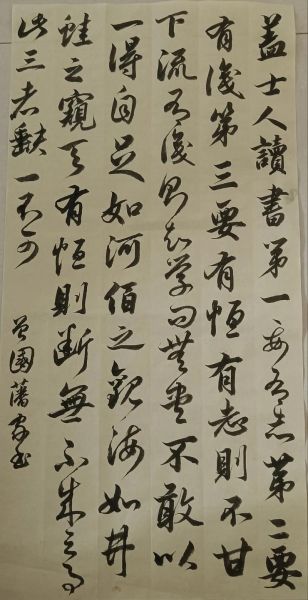 蓋士人讀書第一要有志第二要
有識第三要有恆有志則不甘
下流有識則知學問無盡不敢以
一得自足如河伯之觀海如井
蛙之窺天有恆則斷無不成之事
此三者缺一不可 曾國藩家書